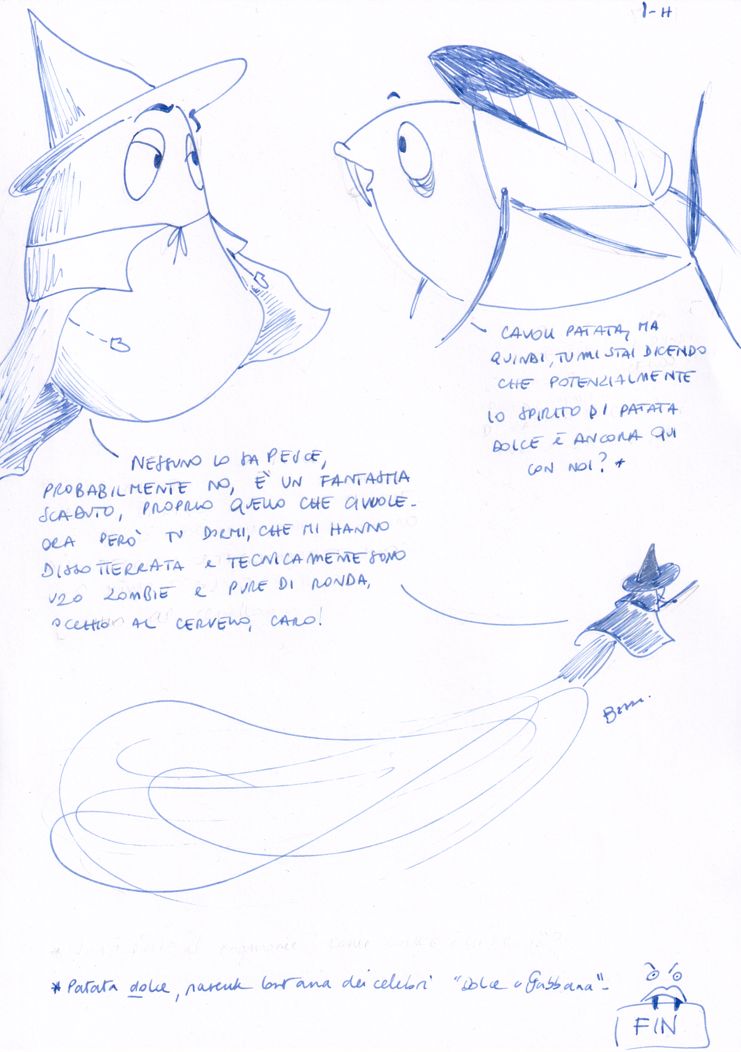 1-H
CAVOLI PATATA, MA
QUINDI, TU MI STAI DICENDO
CHE POTENZIALMENTE
LO SPIRITO DI PATATA
DOLCE È ANCORA QUI
CON NOI? *
NESSUNO LO SA PESCE,
PROBABILMENTE NO, È UN FANTASMA
SCADUTO, PROPRIO QUELLO CHE CI VUOLE-
ORA PERÒ TU DORMI, CHE MI HANNO
DISSOTTERRATA E TECNICAMENTE SONO
UNO ZOMBIE E PURE DI RONDA,
OCCHIO AL CERVELLO, CARO!
* Patata dolce, parente lontana dei celebri "Dolce e Gabbana"-
FIN